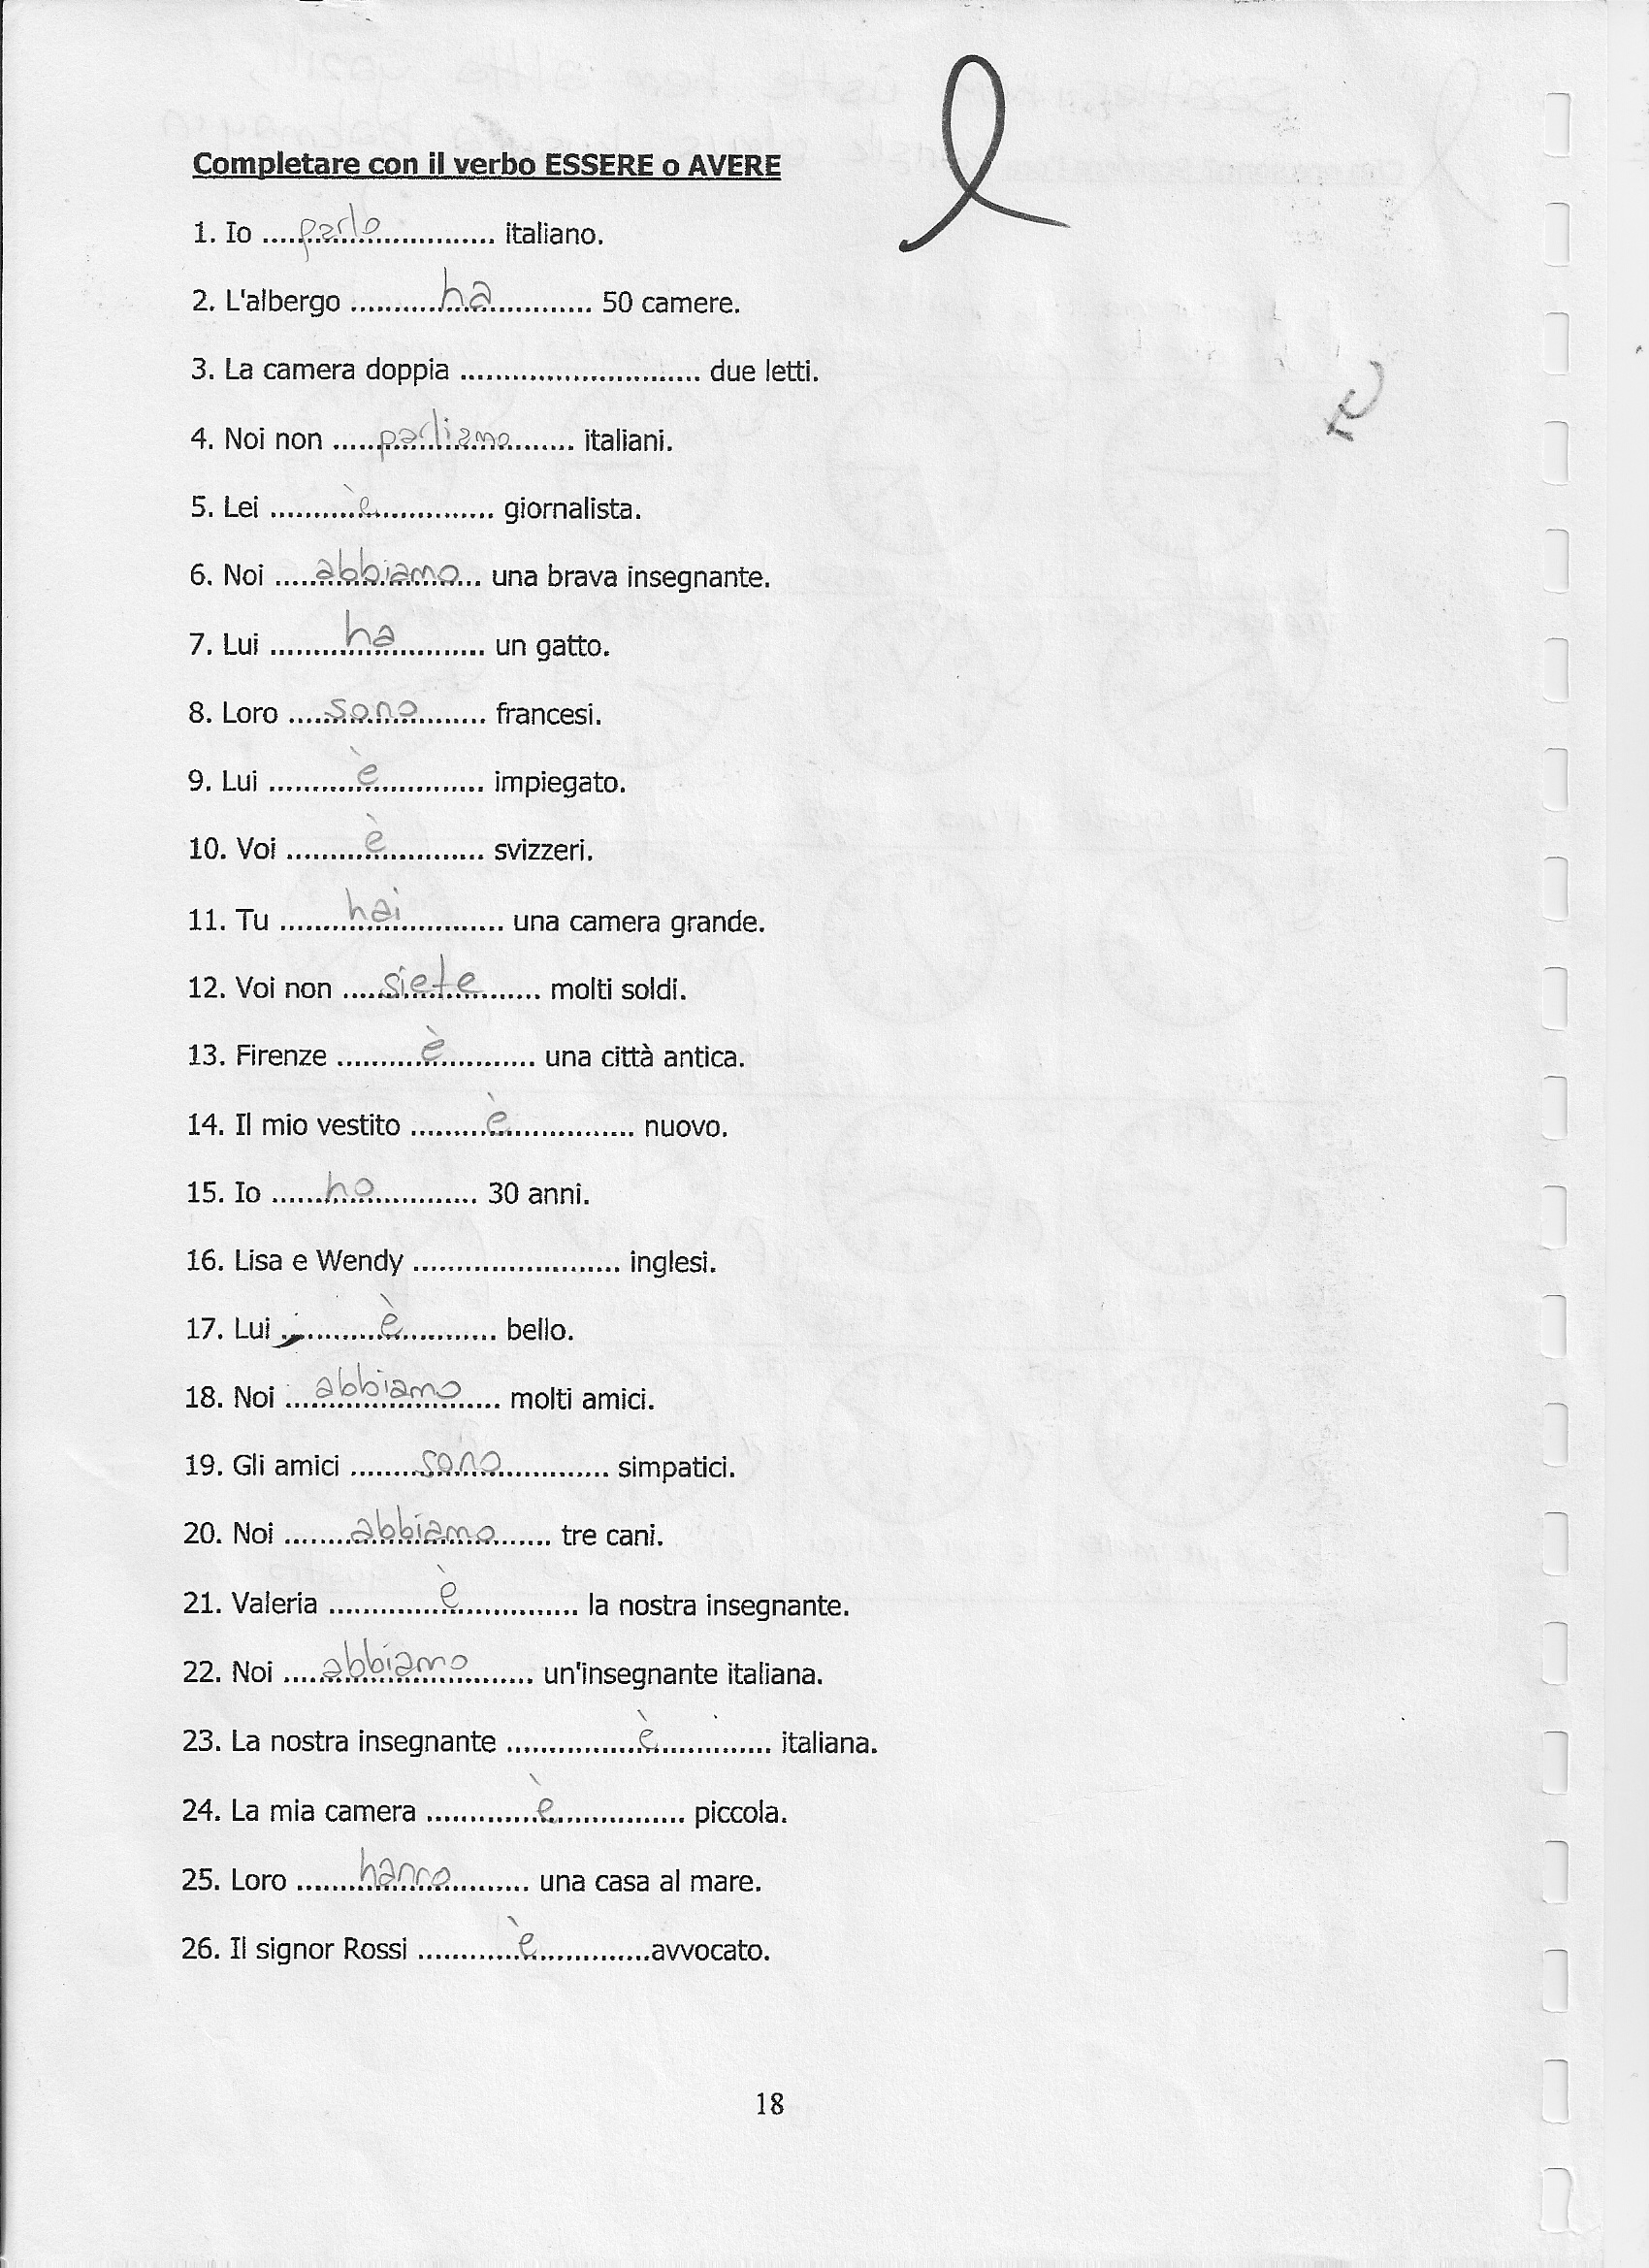 Completare con il verbo ESSERE o AVERE
1. Io ....parlo.... italiano.
2. L'albergo ....ha.... 50 camere.
3. La camera doppia ............................ due letti.
4. Noi non ....parliamo.... italiani.
5. Lei ....è.... giornalista.
6. Noi ....abbiamo.... una brava insegnante.
7. Lui ....ha.... un gatto.
8. Loro ....sono.... francesi.
9. Lui ....è.... impiegato.
10. Voi ....è.... svizzeri.
11. Tu ....hai.... una camera grande.
12. Voi non ....siete.... molti soldi.
13. Firenze ....è.... una città antica.
14. Il mio vestito ....è.... nuovo.
15. Io ....ho.... 30 anni.
16. Lisa e Wendy ........................ inglesi.
17. Lui ....è.... bello.
18. Noi ....abbiamo.... molti amici.
19. Gli amici ....sono.... simpatici.
20. Noi ....abbiamo.... tre cani.
21. Valeria ....è.... la nostra insegnante.
22. Noi ....abbiamo.... un'insegnante italiana.
23. La nostra insegnante ....è.... italiana.
24. La mia camera ....è.... piccola.
25. Loro ....hanno.... una casa al mare.
26. Il signor Rossi ....è....avvocato.
18